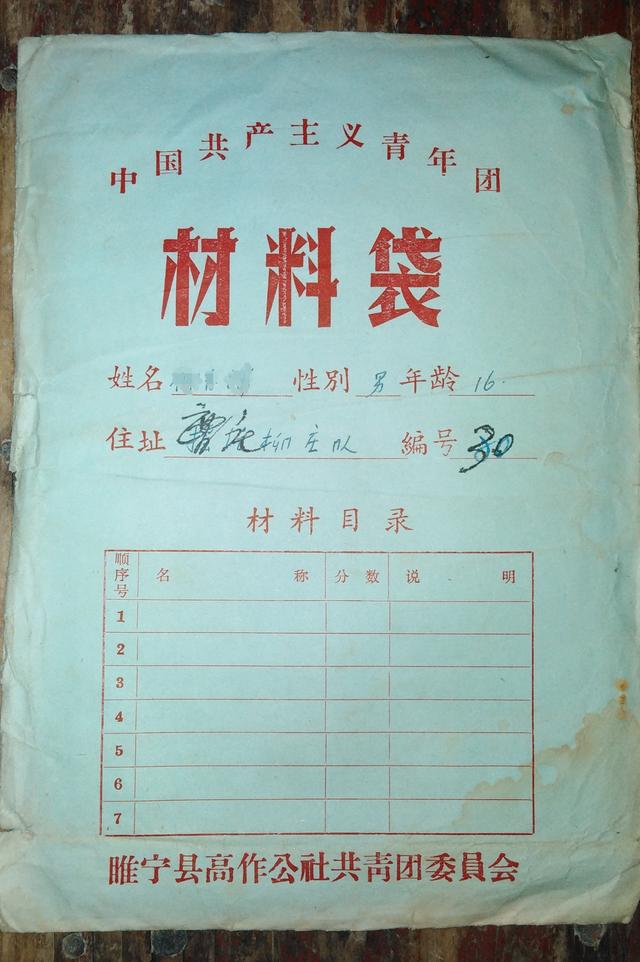 中国共产主义青年团
材料袋
姓名 性別 男 年龄 16.
住址 柳庄队 編号 30
材料目录
顺序号 名称 分数 说明
1
2
3
4
5
6
7
睢宁县高作公社共靑团委員会